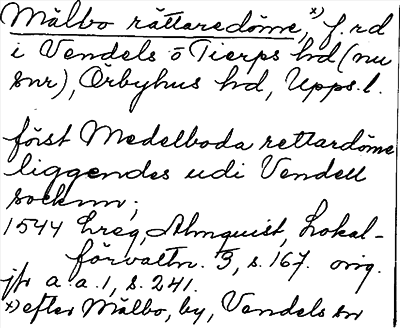 Målbo rättaredöme,x) f.rd
i Vendels o Tierps hd (nu
snr), Örbyhus hd, Upps.l.
först Medelboda rettardöme
liggendes udi Vendell
socknn;
1544 Lreg, Almquist, Lokal-
förvaltn. 3, s. 167. orig.
jfr a.a. 1, s. 241.
x) efter Målbo, by, Vendels sn